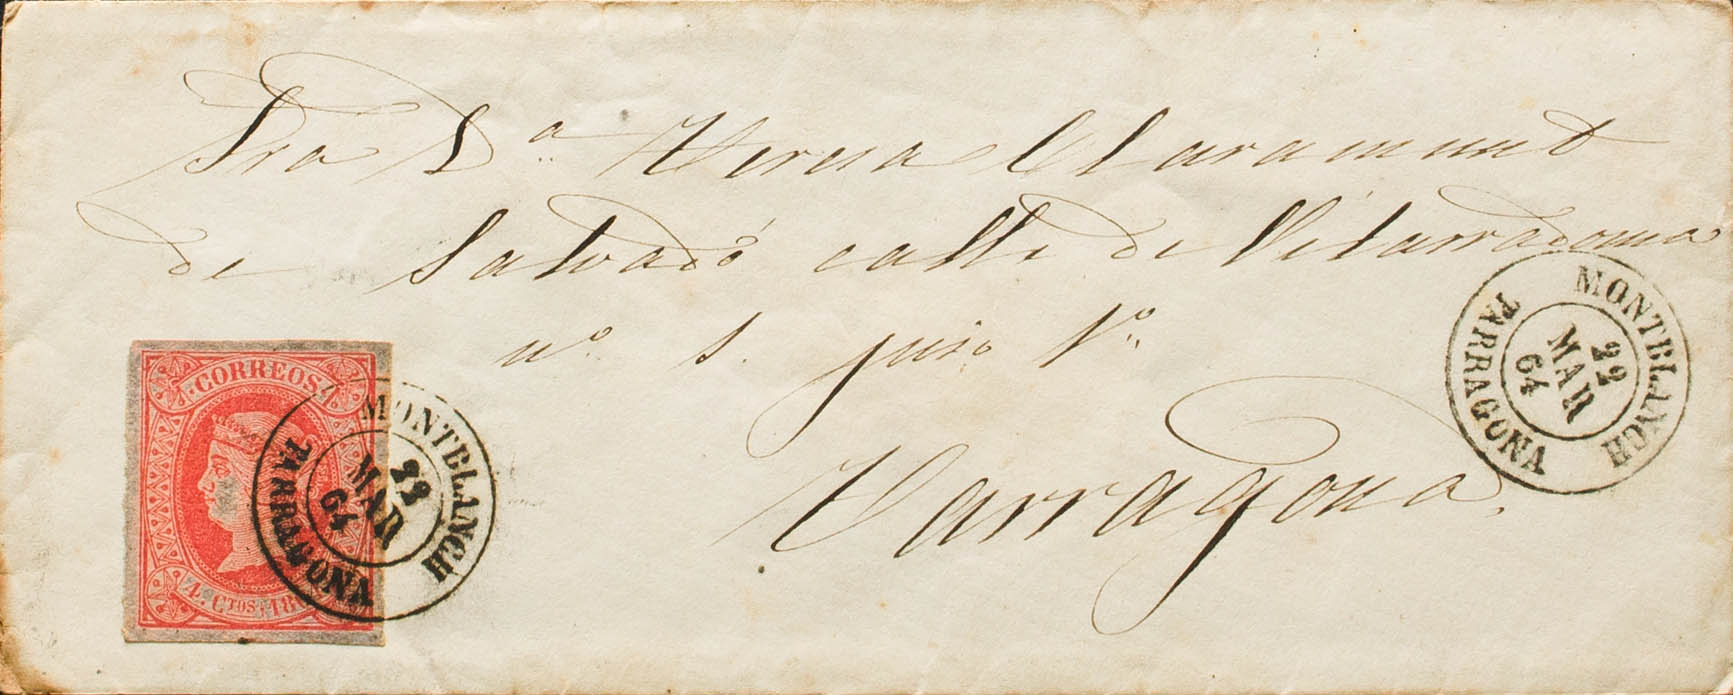 Sra D.ª Teresa Claramunt
de Salvadó calle de Vilarradona
nº 1. piso 1º
Tarragona.
CORREOS
4. CTOS. 18
MONTBLANCH
22
MAR
64
TARRAGONA
MONTBLANCH
22
MAR
64
TARRAGONA